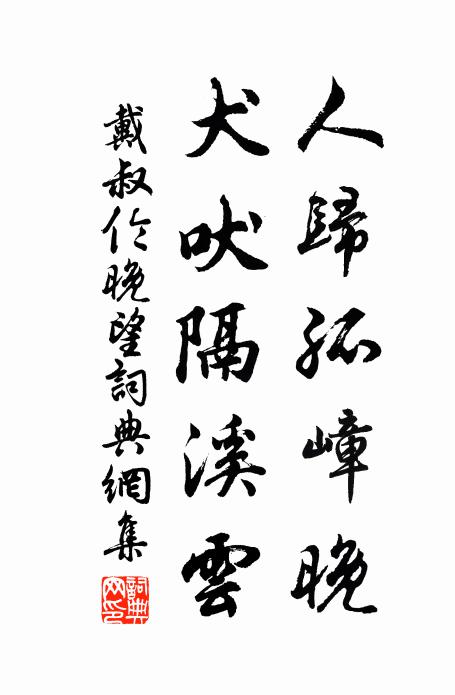 人歸孤嶂晚
犬吠隔溪雲
戴叔伦晚望詞典網集
詞典网印